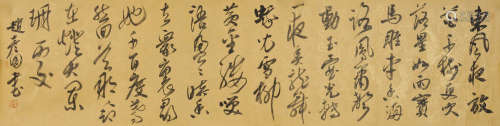 東風夜放
花千樹更吹
落星如雨寶
馬雕車香滿
路鳳簫聲
動玉壺光轉
一夜魚龍舞
蛾兒雪柳
黃金縷笑
語盈盈暗香
去衆裏尋
她千百度驀
然回首那人卻
在燈火闌
珊處
趙 國書